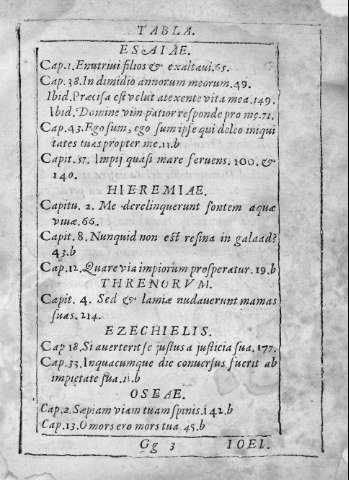 TABLA.
ESAIAE.
Cap.1. Enutriui filios & exaltaui. 65.
Cap.38. In dimidio annorum meorum. 49.
Ibid. Præcisa est velut a texente vita mea. 149.
Ibid. Domine vim patior responde pro me. 71.
Cap.43. Ego sum, ego sum ipse qui deleo iniqui
tates tuas propter me. 11.b
Capit. 57. Impij quasi mare feruens. 100. &
140.
HIEREMIAE.
Capitu. 2. Me derelinquerunt fontem aquæ
viuæ. 66.
Capit. 8. Nunquid non est resina in galaad?
43.b
Cap.12. Quare via impiorum prosperatur. 19.b
THRENORVM.
Capit. 4. Sed & lamiæ nudauerunt mamas
suas. 214.
EZECHIELIS.
Cap 18. Si auerterit se justus a justicia sua. 177.
Cap.33. Inquacumque die conuersus fuerit ab
impietate sua. 11.b
OSEAE.
Cap.2. Sæpiam viam tuam spinis. 142.b
Cap.13. O mors ero mors tua. 45.b
Gg 3 IOEL.